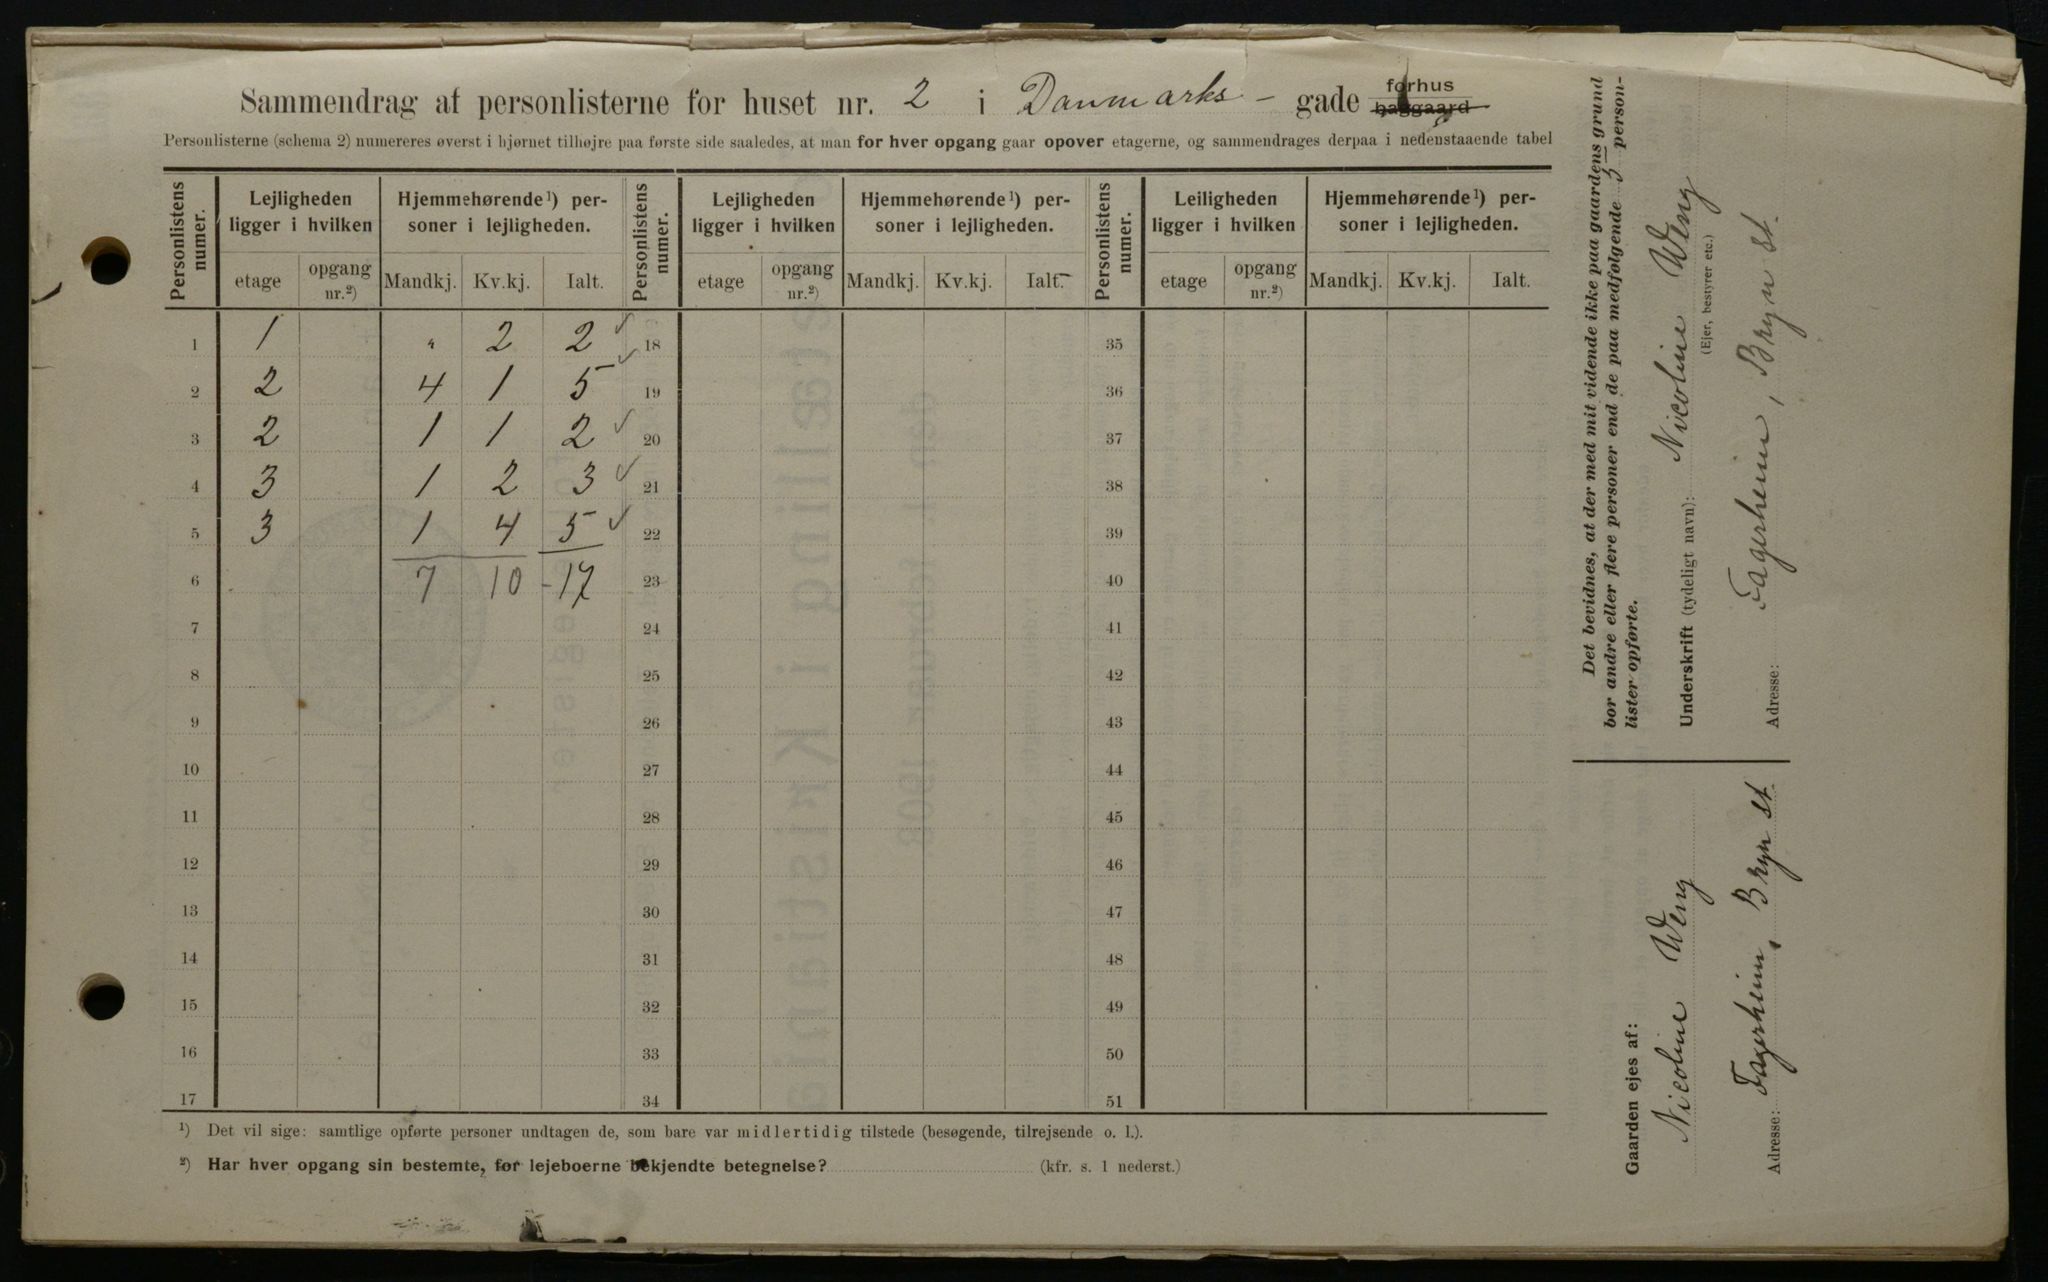 Sammendrag af personlisterne for huset nr. 2 i Danmarks - gade forhus baggaard
Personlisterne (schema 2) numereres øverst i hjørnet tilhøjre paa første side saaledes, at man for hver opgang gaar opover etagerne, og sammendrages derpaa i nedenstaaende tabel
Personlistens numer. Lejligheden ligger i hvilken Hjemmehørende¹) personer i lejligheden. Personlistens numer. Lejligheden ligger i hvilken Hjemmehørende¹) personer i lejligheden. Personlistens numer. Leiligheden ligger i hvilken Hjemmehørende¹) personer i lejligheden.
etage opgang nr.²) Mandkj. Kv.kj. Ialt. etage opgang nr.²) Mandkj. Kv.kj. Ialt. etage opgang nr.²) Mandkj. Kv.kj. Ialt.
1 1 " 2 2 ✓ 18 35
2 2 4 1 5 ✓ 19 36
3 2 1 1 2 ✓ 20 37
4 3 1 2 3 ✓ 21 38
5 3 1 4 5 ✓ 22 39
6 7 10 - 17 23 40
7 24 41
8 25 42
9 26 43
10 27 44
11 28 45
12 29 46
13 30 47
14 31 48
15 32 49
16 33 50
17 34 51
¹) Det vil sige: samtlige opførte personer undtagen de, som bare var midlertidig tilstede (besøgende, tilrejsende o. l.).
²) Har hver opgang sin bestemte, for lejeboerne bekjendte betegnelse? (kfr. s. 1 nederst.)
Det bevidnes, at der med mit vidende ikke paa gaardens grund
bor andre eller flere personer end de paa medfølgende 5 person-
lister opførte.
Underskrift (tydeligt navn): Nicoline Weng
(Ejer, bestyrer etc.)
Adresse: Fagerheim, Bryn st.
Gaarden ejes af:
Nicoline Weng
Adresse: Fagerheim, Bryn st.